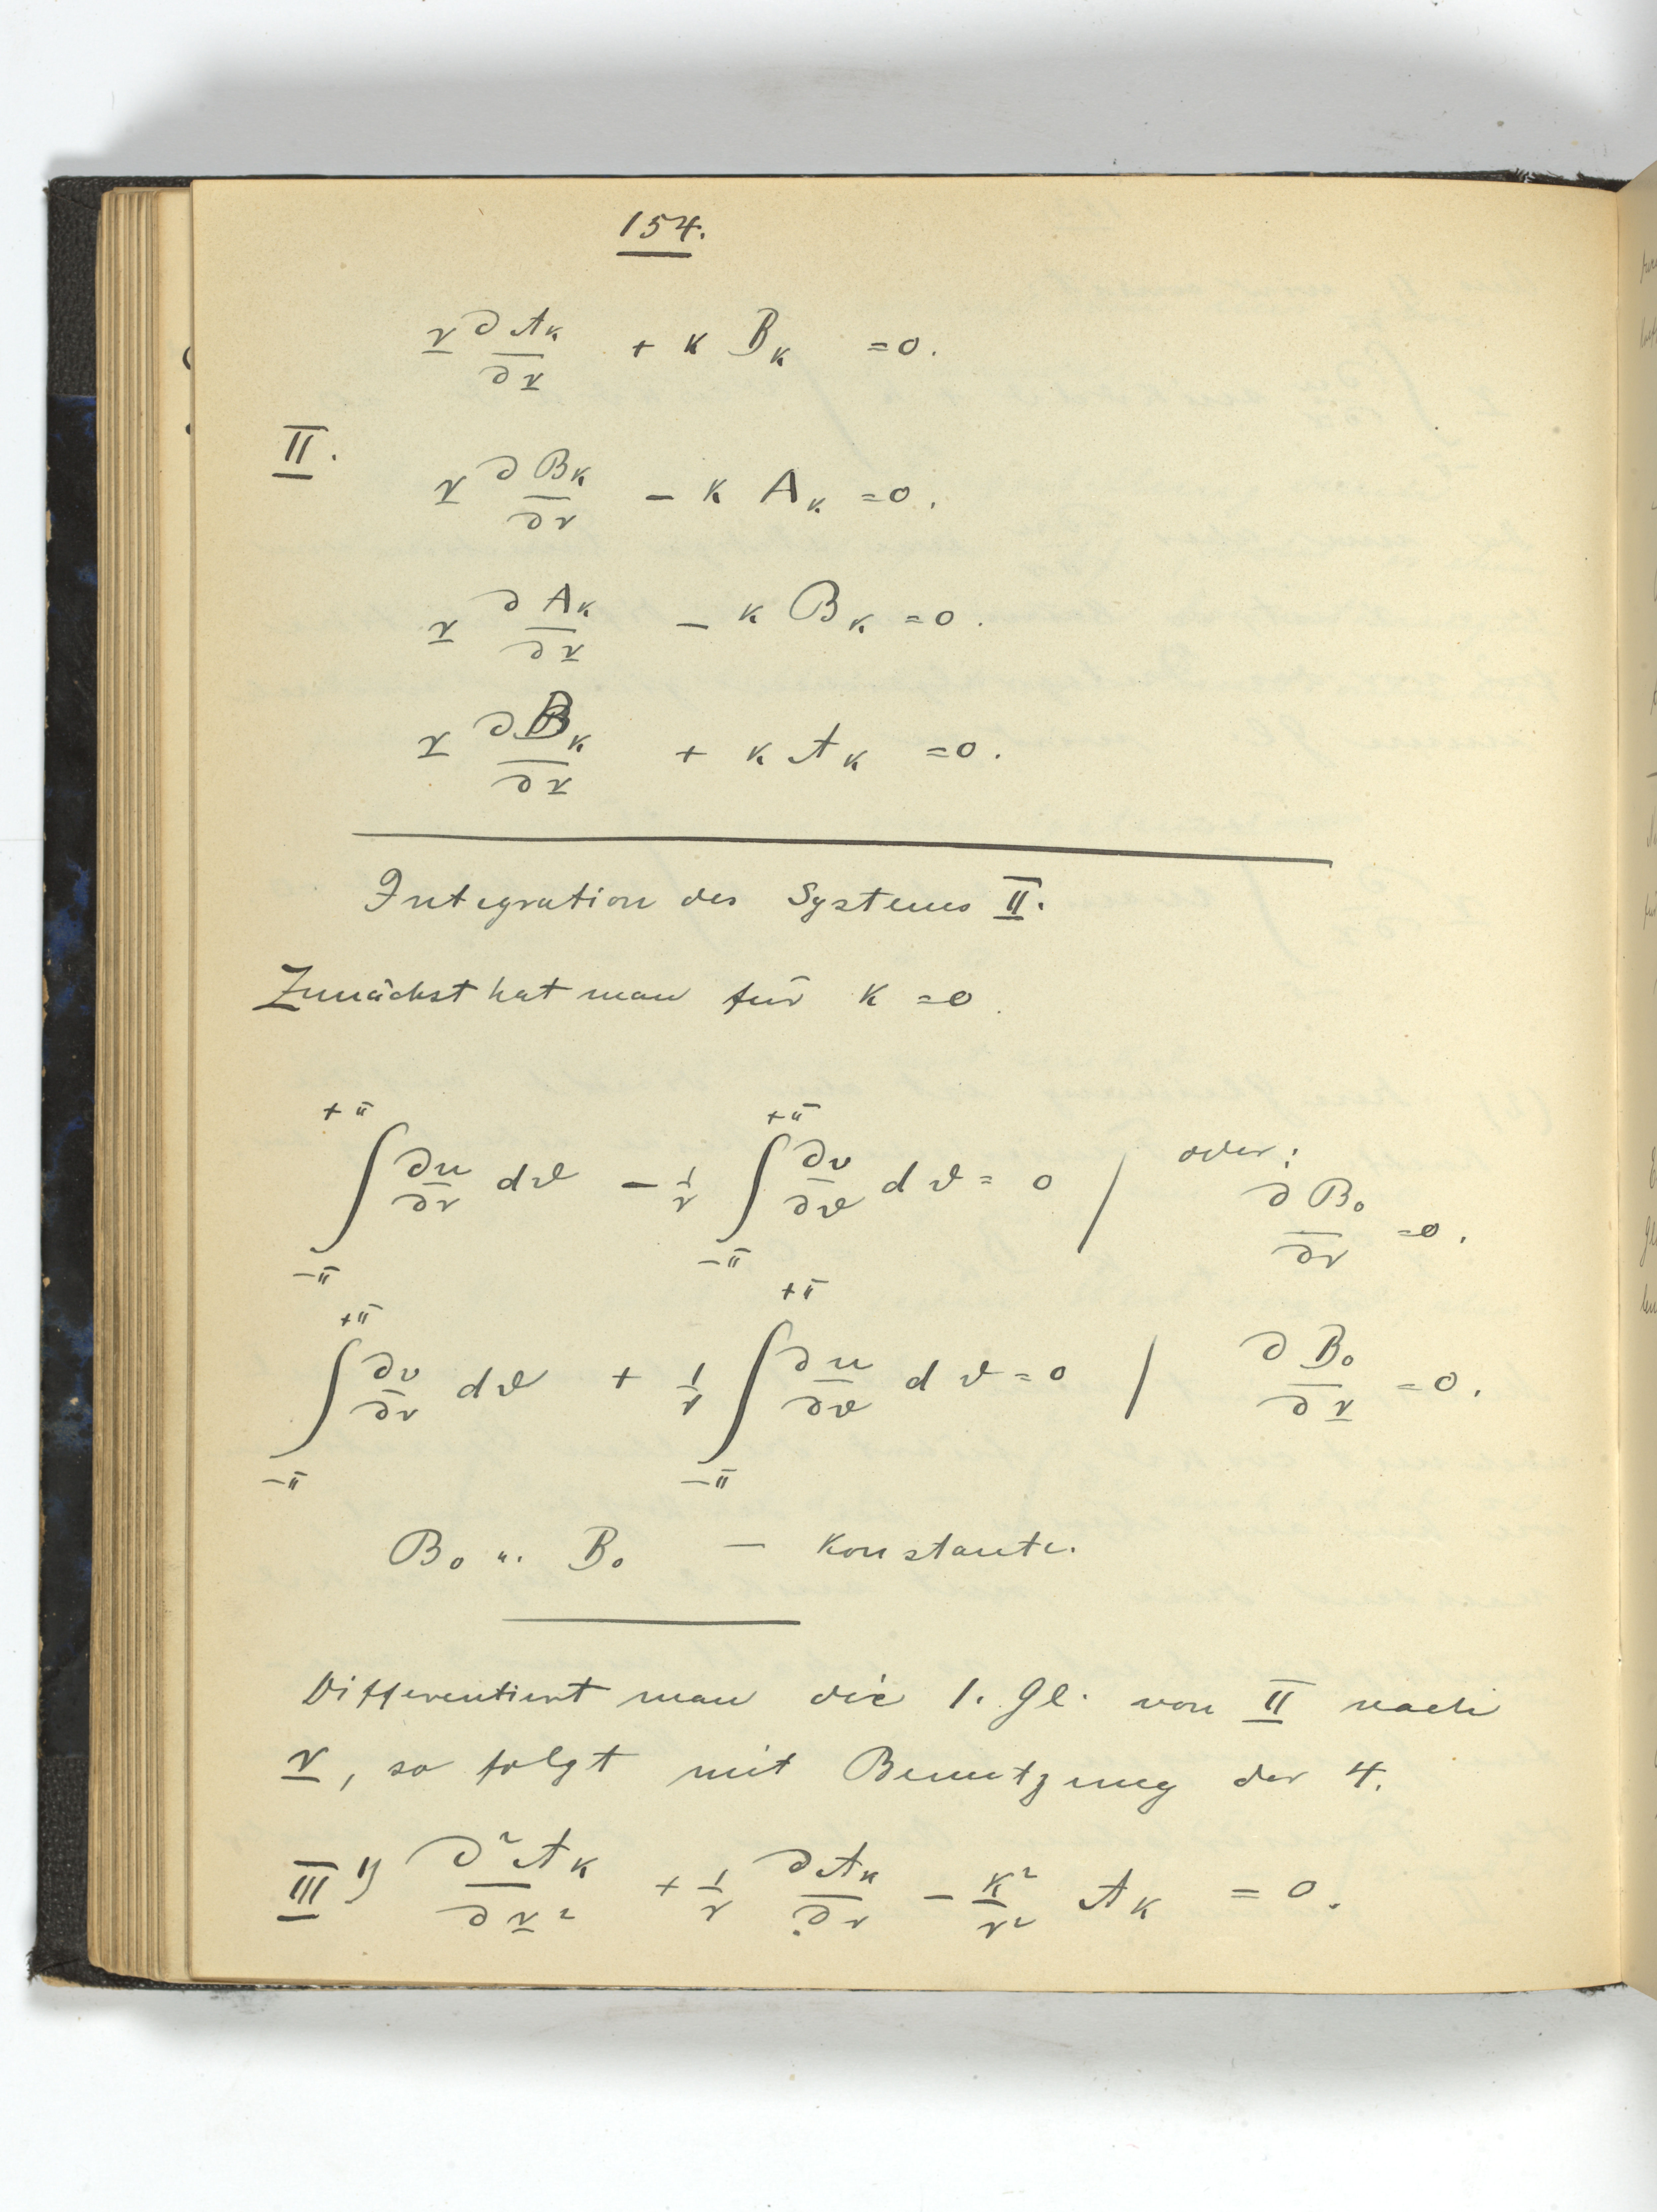 154.
r ∂𝒜ₖ/∂r + k Bₖ = 0.
II.
r ∂ℬₖ/∂r − k Aₖ = 0.
r ∂Aₖ/∂r − k ℬₖ = 0.
r ∂Bₖ/∂r + k 𝒜ₖ = 0.
Integration des Systems II.
Zunächst hat man für k = 0.
∫_{−π}^{+π} ∂u/∂r dϑ − 1/r ∫_{−π}^{+π} ∂v/∂ϑ dϑ = 0 / oder: ∂ℬ₀/∂r = 0.
∫_{−π}^{+π} ∂v/∂r dϑ + 1/r ∫_{−π}^{+π} ∂u/∂ϑ dϑ = 0 / ∂B₀/∂r = 0.
ℬ₀ u. B₀ — Konstante.
Differentiert man die 1. Gl. von II nach
r, so folgt mit Benutzung der 4.
III 1) ∂²𝒜ₖ/∂r² + 1/r ∂𝒜ₖ/∂r − k²/r² 𝒜ₖ = 0.